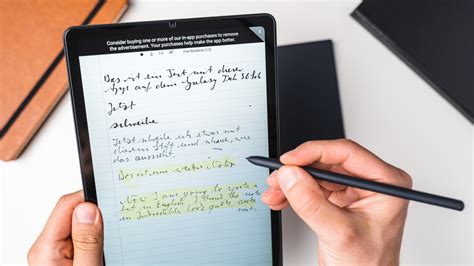 Consider buying one or more of our in-app purchases to remove
the advertisement. Your purchases help make the app better.
Das ist ein Test mit dieser
App auf dem Galaxy Tab S6
Jetzt
schreibe
Jetzt schreibe ich etwas mit
diesem Stift und schaue, wie
das aussieht.
Das ist eine weitere
Now I am going to write a
in English, I think the